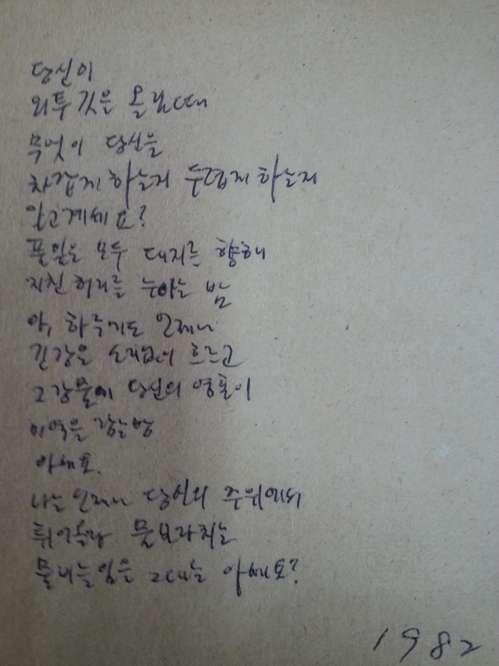 당신이
외투 깃은 올릴때
무엇이 당신을
차갑게 하는지 두렵게 하는지
알고계세요?
풀잎은 모두 대지를 향해
지친 허리를 눕히는 밤
아, 하늘가도 언제나
긴강은 소리없이 흐르고
그 강물에 당신의 영혼이
미역을 감는 밤
아세요.
나는 언제나 당신의 주위에서
튀어올라 물보라치는
물비늘임을 그대는 아세요?
1982